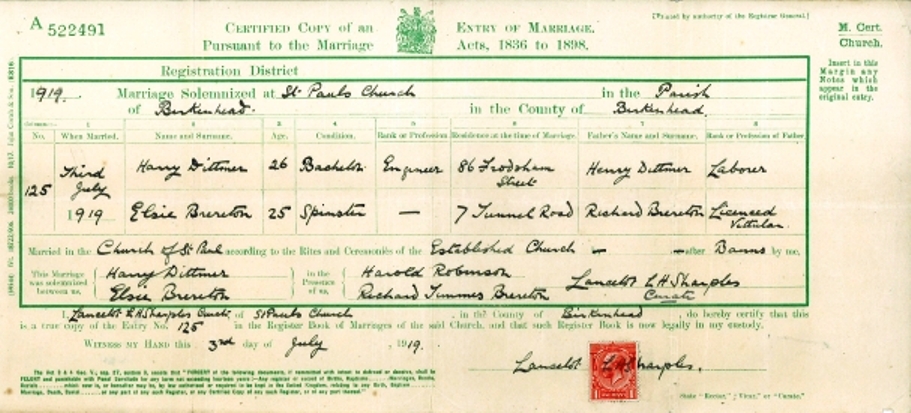 A 522491
CERTIFIED COPY of an ENTRY OF MARRIAGE.
Pursuant to the Marriage Acts, 1836 to 1898.
[Printed by authority of the Registrar General.]
M. Cert.
Church.
Insert in this
Margin any
Notes which
appear in the
original entry.
Registration District
1919. Marriage Solemnized at St Pauls Church in the Parish
of Birkenhead. in the County of Birkenhead.
No. When Married. Name and Surname. Age. Condition. Rank or Profession Residence at the time of Marriage. Father's Name and Surname. Rank or Profession of Father
125 Third July 1919
Harry Dittmer 26 Bachelor Engineer 86 Frodsham Street Henry Dittmer Laborer
Elsie Brereton 25 Spinster — 7 Tunnel Road Richard Brereton Licenced Vittular.
Married in the Church of St Paul according to the Rites and Ceremonies of the Established Church — — after Banns by me,
This Marriage was solemnized between us, Harry Dittmer Elsie Brereton in the Presence of us, Harold Robinson Richard Timmes Brereton Lancelot L H Sharples Curate
I, Lancelot L H Sharples Curate of St Pauls Church, in the County of Birkenhead, do hereby certify that this
is a true copy of the Entry No. 125 in the Register Book of Marriages of the said Church, and that such Register Book is now legally in my custody.
WITNESS MY HAND this 3rd day of July 1919.
Lancelot L H Sharples.
State "Rector," "Vicar," or "Curate."